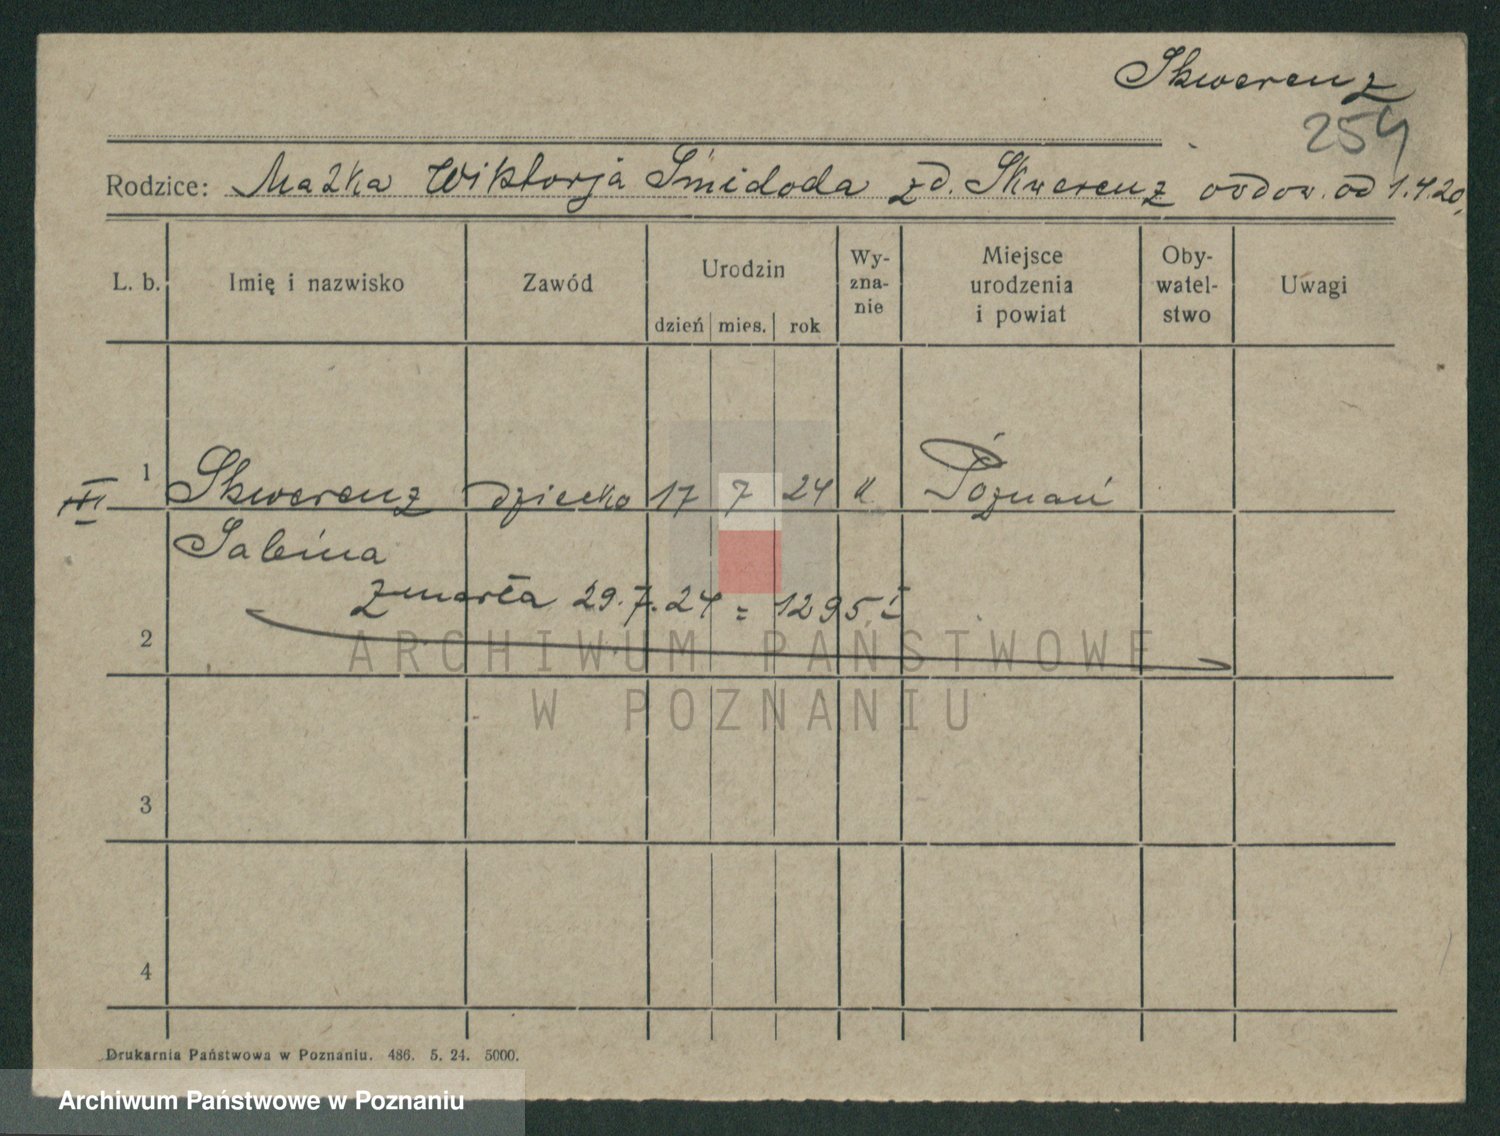 Skwerenz
254
Rodzice: Matka Wiktorja Śmidoda zd. Skwerenz owdow. od 1.4.20.
L. b. Imię i nazwisko Zawód Urodzin dzień mies. rok Wy-zna-nie Miejsce urodzenia i powiat Oby-watel-stwo Uwagi
III 1 Skwerenz dziecko 17 7 24 k Poznań
Sabina
zmarła 29.7.24 = 1295 I
2
3
4
Drukarnia Państwowa w Poznaniu. 486. 5. 24. 5000.
ARCHIWUM PAŃSTWOWE
W POZNANIU
Archiwum Państwowe w Poznaniu